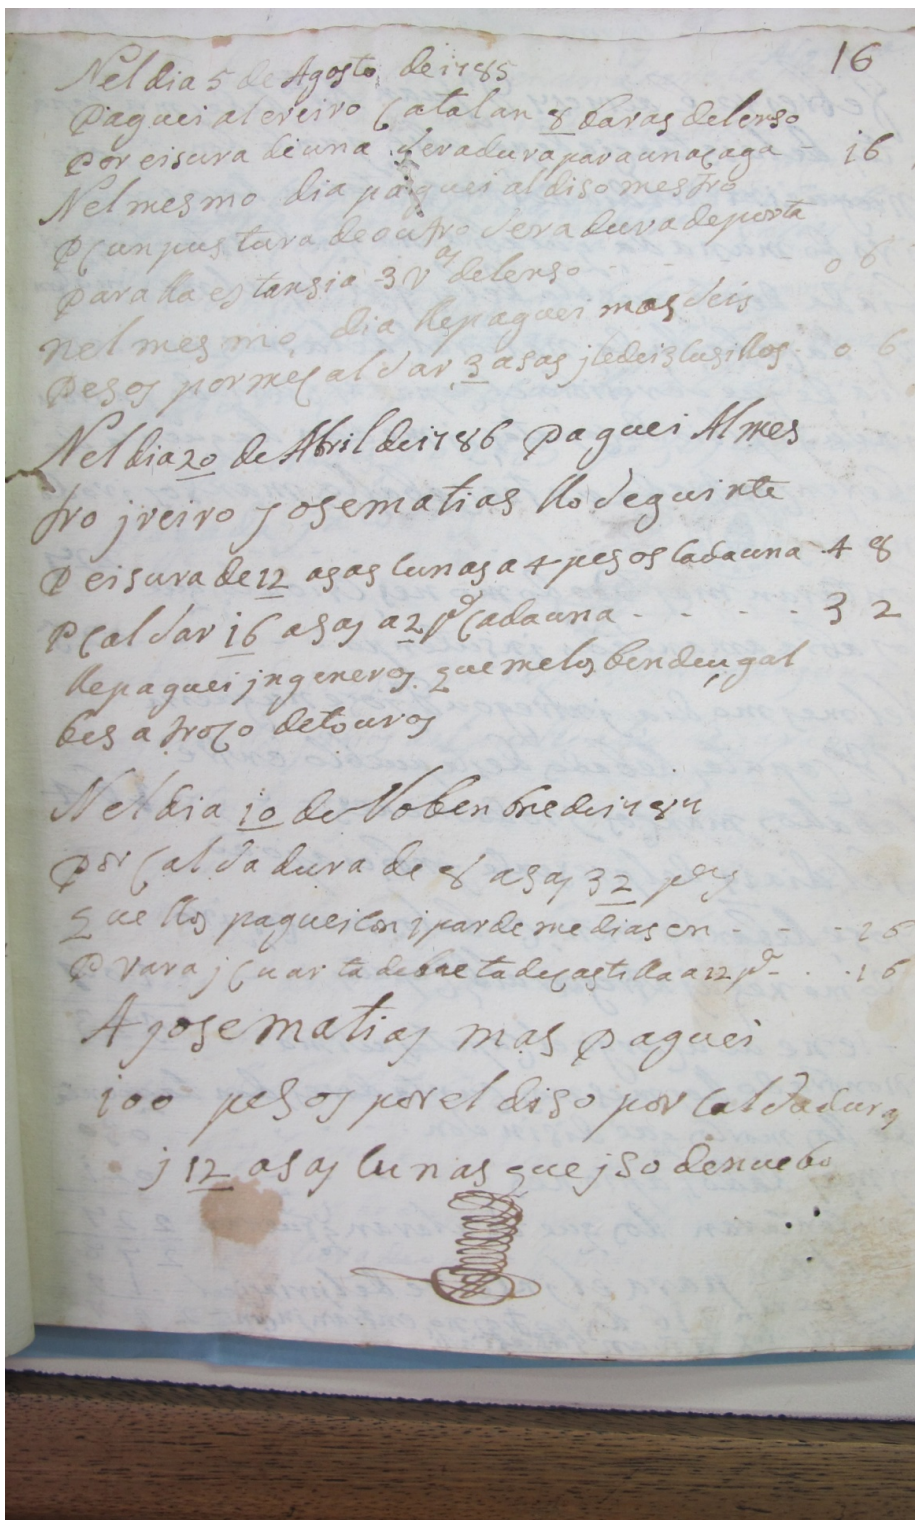 16
Nel dia 5 de Agosto de 1785
Paguei al ereiro Catalan 8 baras de lenso
por eisura de una seradura para una caga - 16
Nel mesmo dia paguei al diso mestro
P cunpustura de outro seradura de porta
para lla estansia 3 v.as de lenso - - 0 6
nel mesmo dia lle paguei mas seis
pesos por mes caldar 3 asas j le deis lusillos 0 6
Nel dia 20 de Abril de 1786 paguei Al mes
tro jreiro josematias llo seguinte
P eisura de 12 asas lunas a 4 pesos cada una 48
P caldar 16 asas a 2 p.s Cada una - - - - - 32
lle paguei jngeneros que melos benden gal
bes a troco de touros
Nel dia 10 de Nobenbre de 1787
por Caldadura de 8 asas 32 pes
que llos paguei con j par de medias en - - - 16
P vara j cuarta de baeta de castilla a 12 p.s - . . 16
A josematias mas paguei
100 pesos por el diso por Caldadura
j 12 asas lunas que jso de nuebo